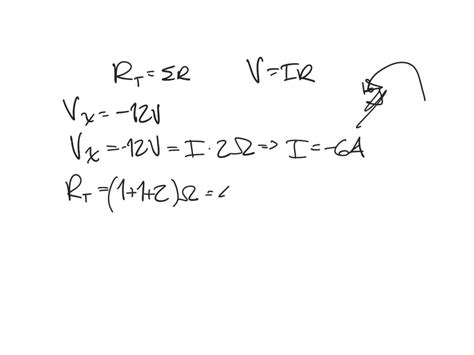 R_T = ΣR V = IR
V_x = -12V
V_x = -12V = I · 2Ω => I = -6A
R_T = (1+1+2)Ω =